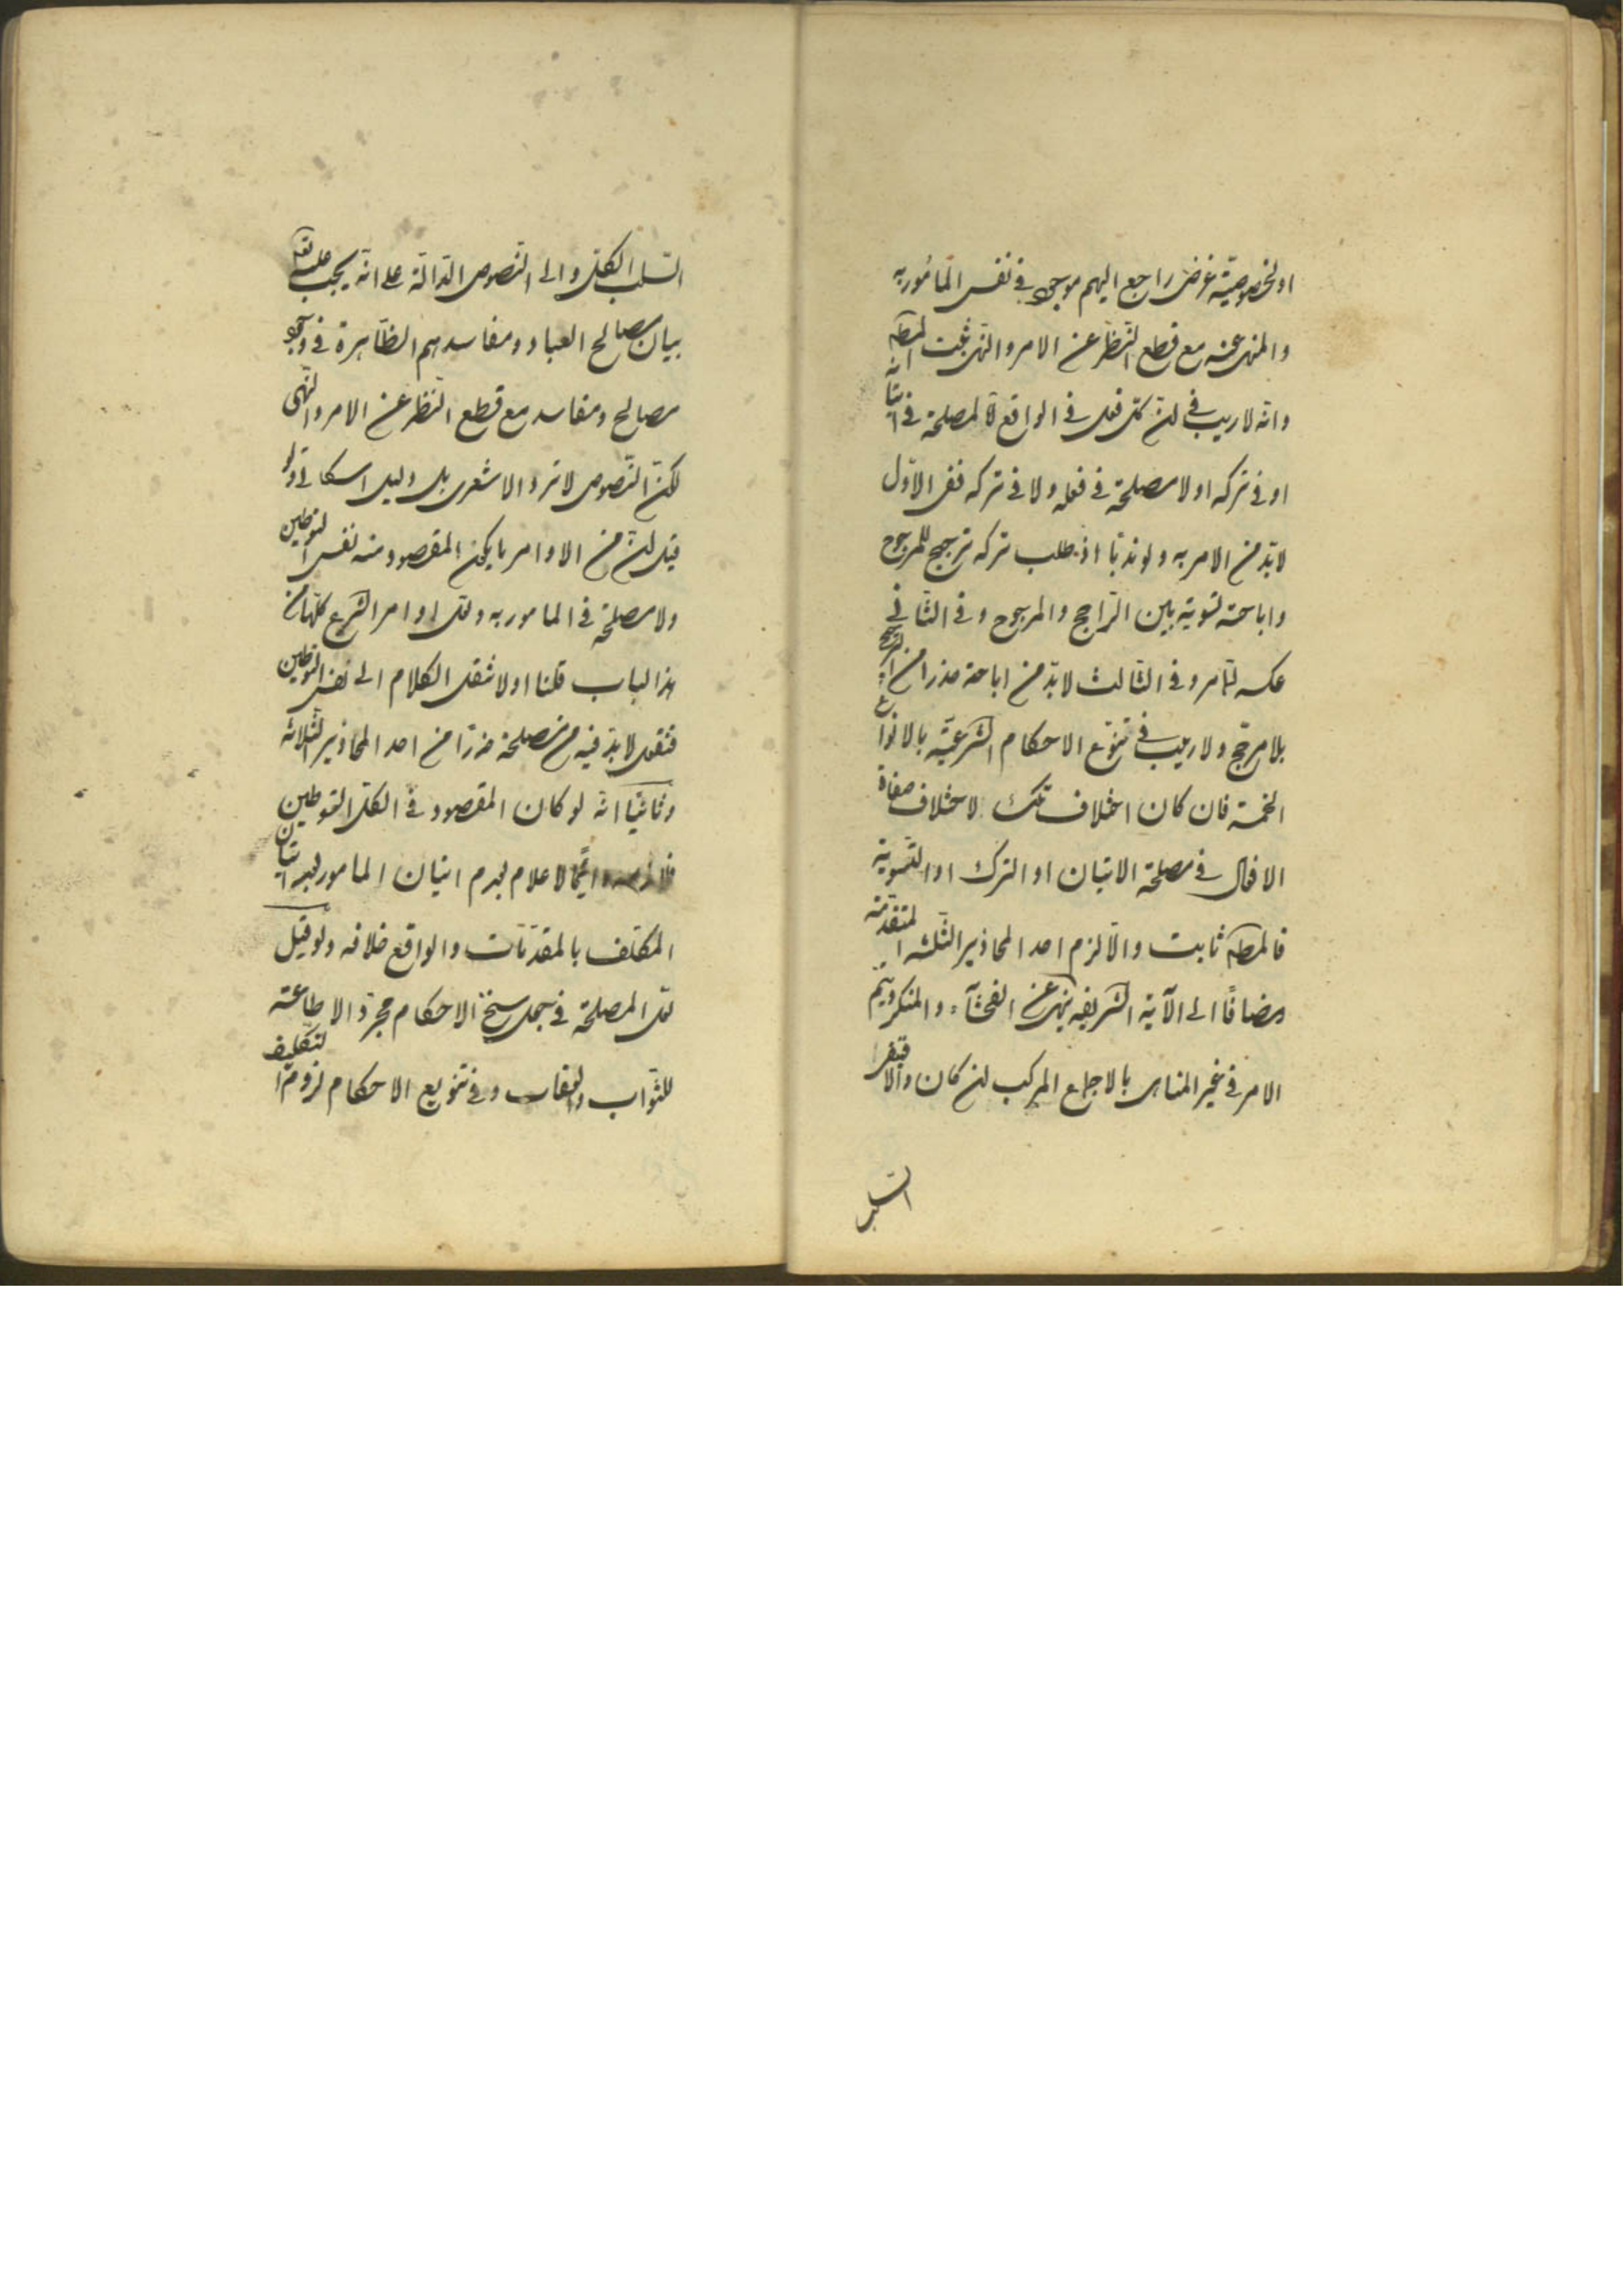 او لخصوصيّة غرض راجع اليهم موجود في نفس المأمور به
والمنهى عنه مع قطع النّظر عن الامر والنهى ثبت المطه
وانّه لا ريب في انّ كلّ فعل في الواقع لا لمصلحة في اتيانه
او في تركه او لا مصلحة في فعله ولا في تركه ففى الاوّل
لابدّ من الامر به ولو ندبًا اذ طلب تركه ترجيح للمرجوح
واباحته تسوية بين الرّاجح والمرجوح وفى الثّانى
عكسه لما مر وفى الثالث لابدّ من اباحته حذرا من الترجيح
بلا مرجّح ولا ريب في تنوّع الاحكام الشّرعيّة بالانواع
الخمسة فان كان اختلاف تلك لاختلاف صفات
الافعال في مصلحة الاتيان او الترك او التّسوية
فالمطه ثابت والّا لزم احد المحاذير الثّلثه المتقدّمة
مضافًا الى الآية الشّريفه ينهى عن الفحشآء والمنكر ويتمّ
الامر في غير المناهى بالاجماع المركب ان كان والّا
السلب
السّلب الكلّى والى النّصوص الدّالّة على انّه يجب عليه تعه
بيان مصالح العباد ومفاسدهم الظّاهرة في وجود
مصالح ومفاسد مع قطع النّظر عن الامر والنّهى
لكنّ النّصوص لا تردّ الاشعرى بل دليل اسكاتى ولو
قيل انّ من الاوامر ما يكون المقصود منه نفس التوطين
ولا مصلحة في المامور به ولعل اوامر الشّرع كلّها من
هذا الباب قلنا اولا ننقل الكلام الى نفس التوطين
فنقول لابدّ فيه من مصلحة حذرًا من احد المحاذير الثّلاثه
وثانيًا انّه لو كان المقصود في الكلّ التوطين
الاعلام بعدم اتيان المامور به اتيان
المكلّف بالمقدّمات والواقع خلافه ولو قيل
لعل المصلحة في جعل سنخ الاحكام مجرّد الاطاعة
للثّواب والعقاب وفى تنويع الاحكام لزوم التّكليف